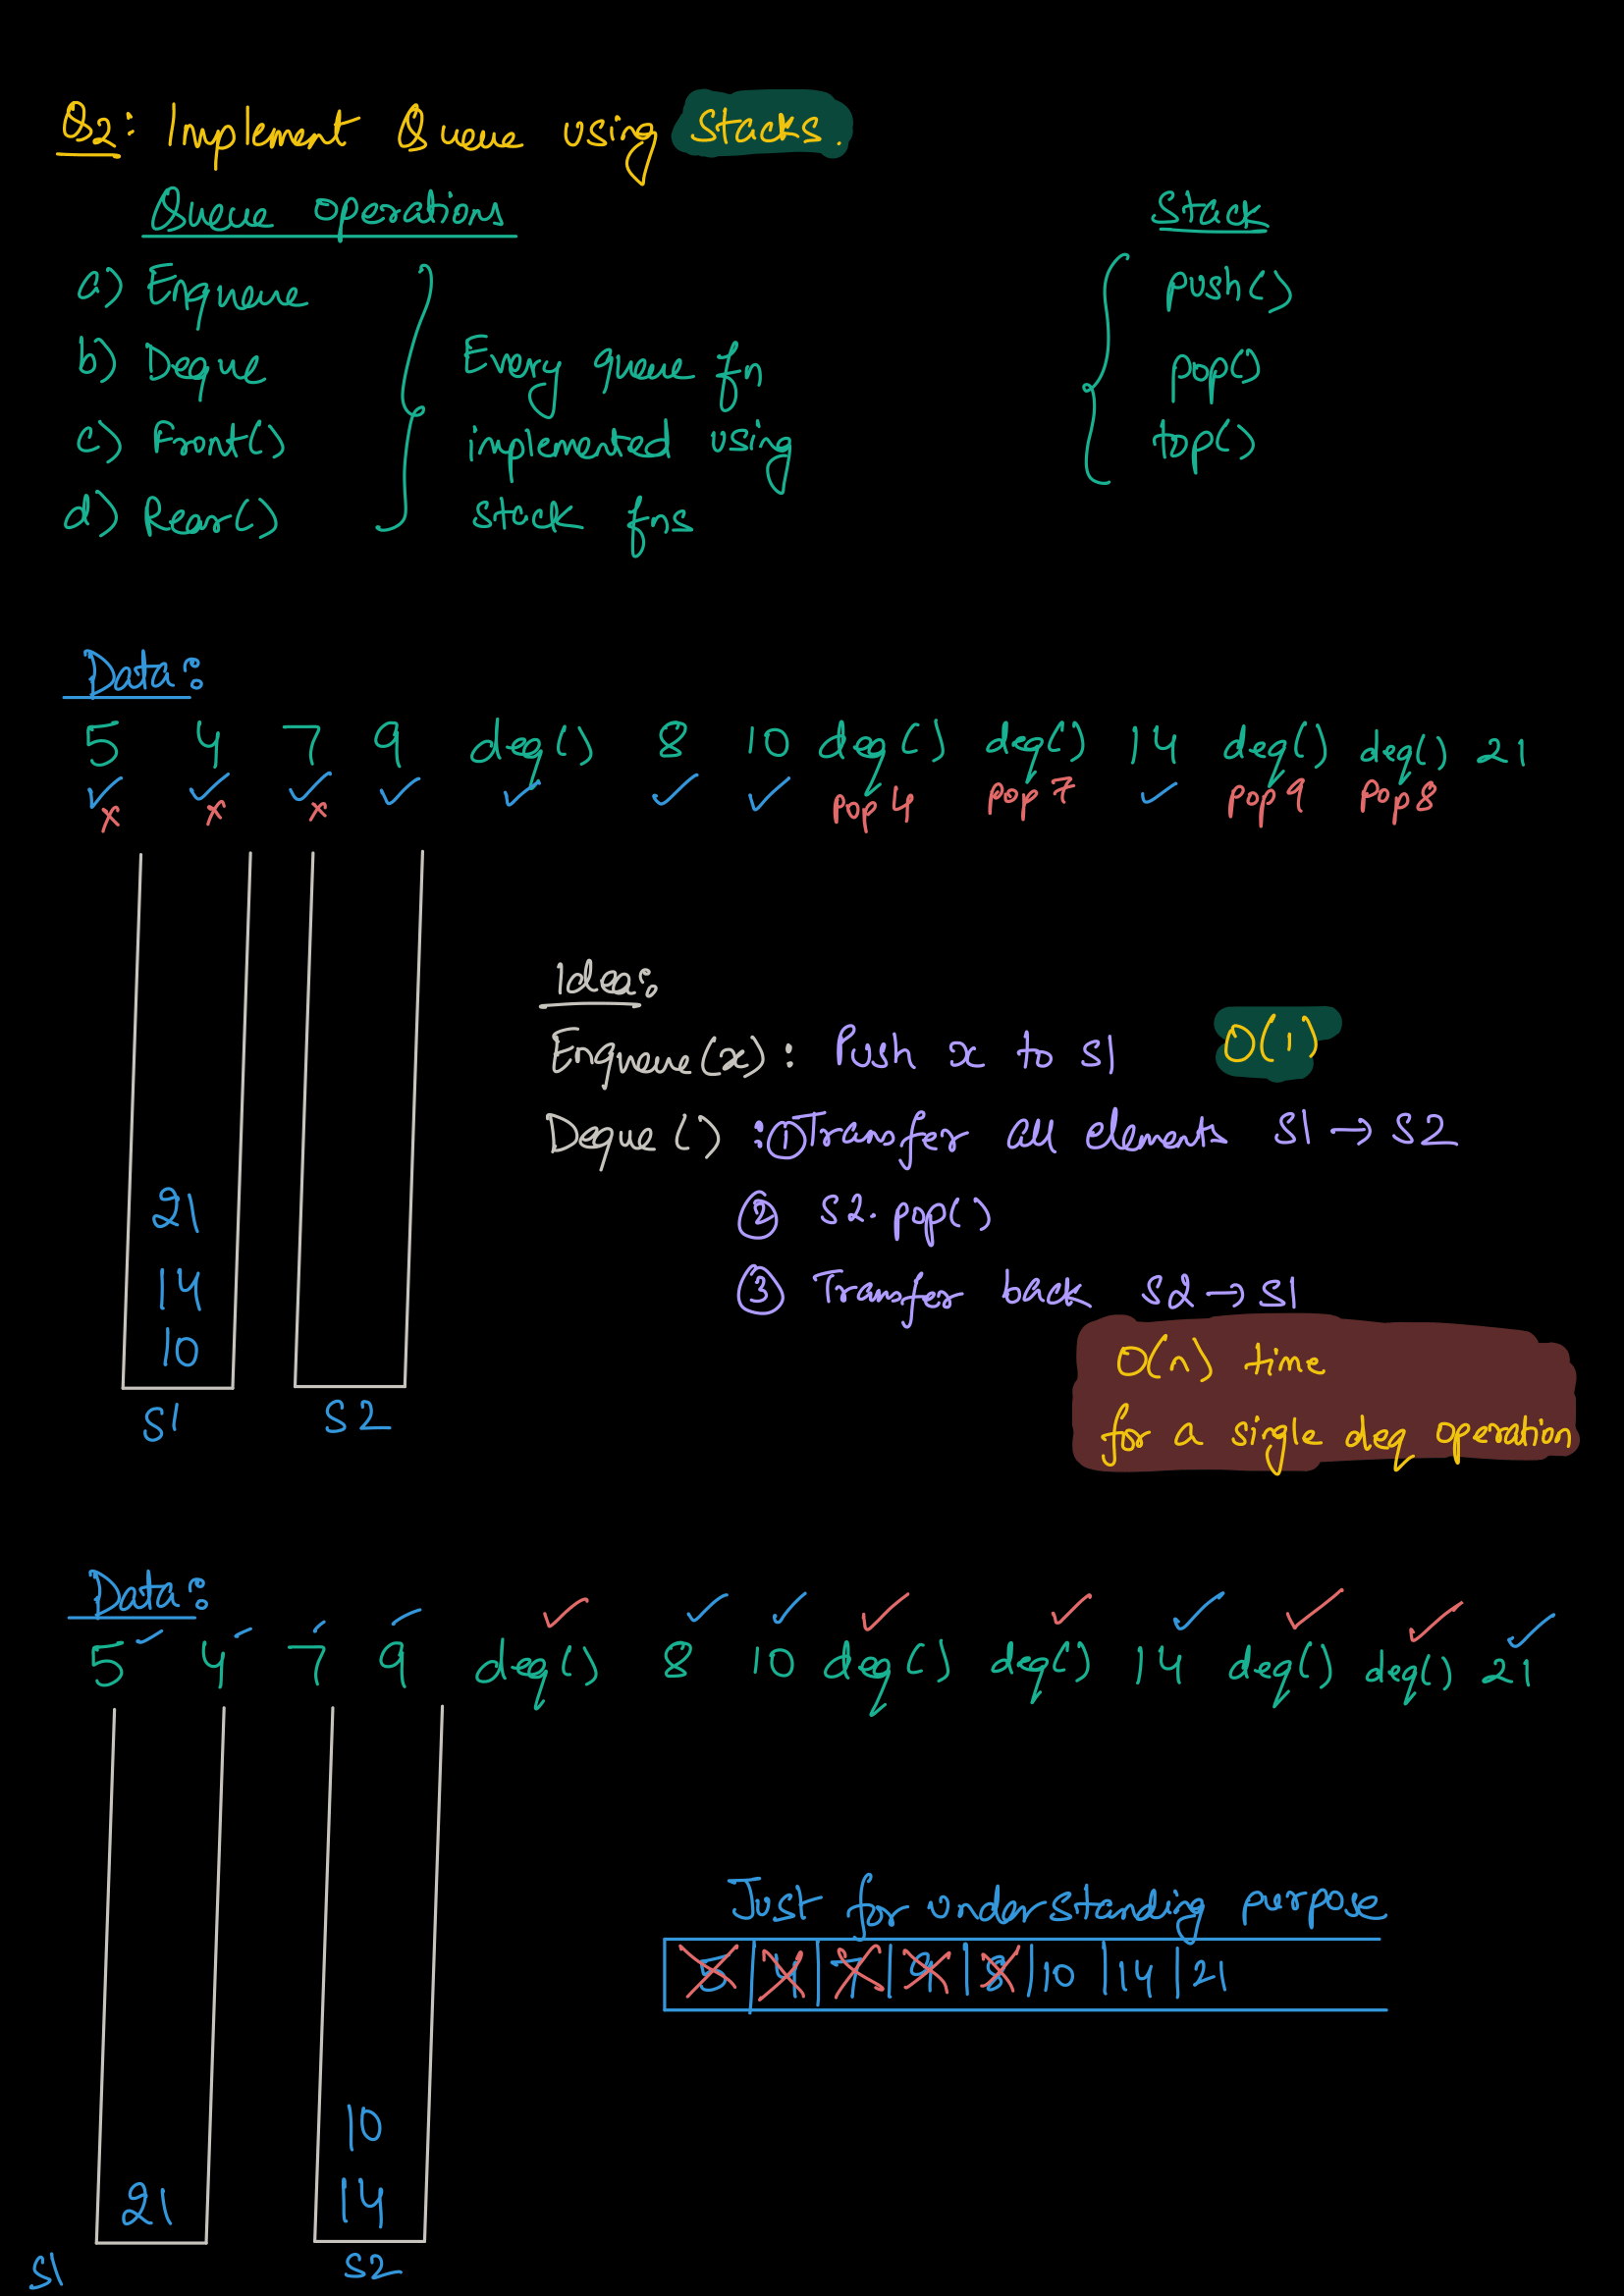 Q2: Implement Queue using Stacks.
Queue operations
a) Enqueue
b) Deque
c) Front()
d) Rear()
Every queue fn
implemented using
stack fns
Stack
push()
pop()
top()
Data:
5 4 7 9 deq() 8 10 deq() deq() 14 deq() deq() 21
pop 4 pop 7 pop 9 pop 8
21
14
10
S1 S2
Idea:
Enqueue(x): Push x to S1 O(1)
Deque() : ① Transfer all elements S1 → S2
② S2. pop()
③ Transfer back S2 → S1
O(n) time
for a single deq operation
Data:
5 4 7 9 deq() 8 10 deq() deq() 14 deq() deq() 21
Just for understanding purpose
5 4 7 9 8 10 14 21
10
21 14
S1 S2